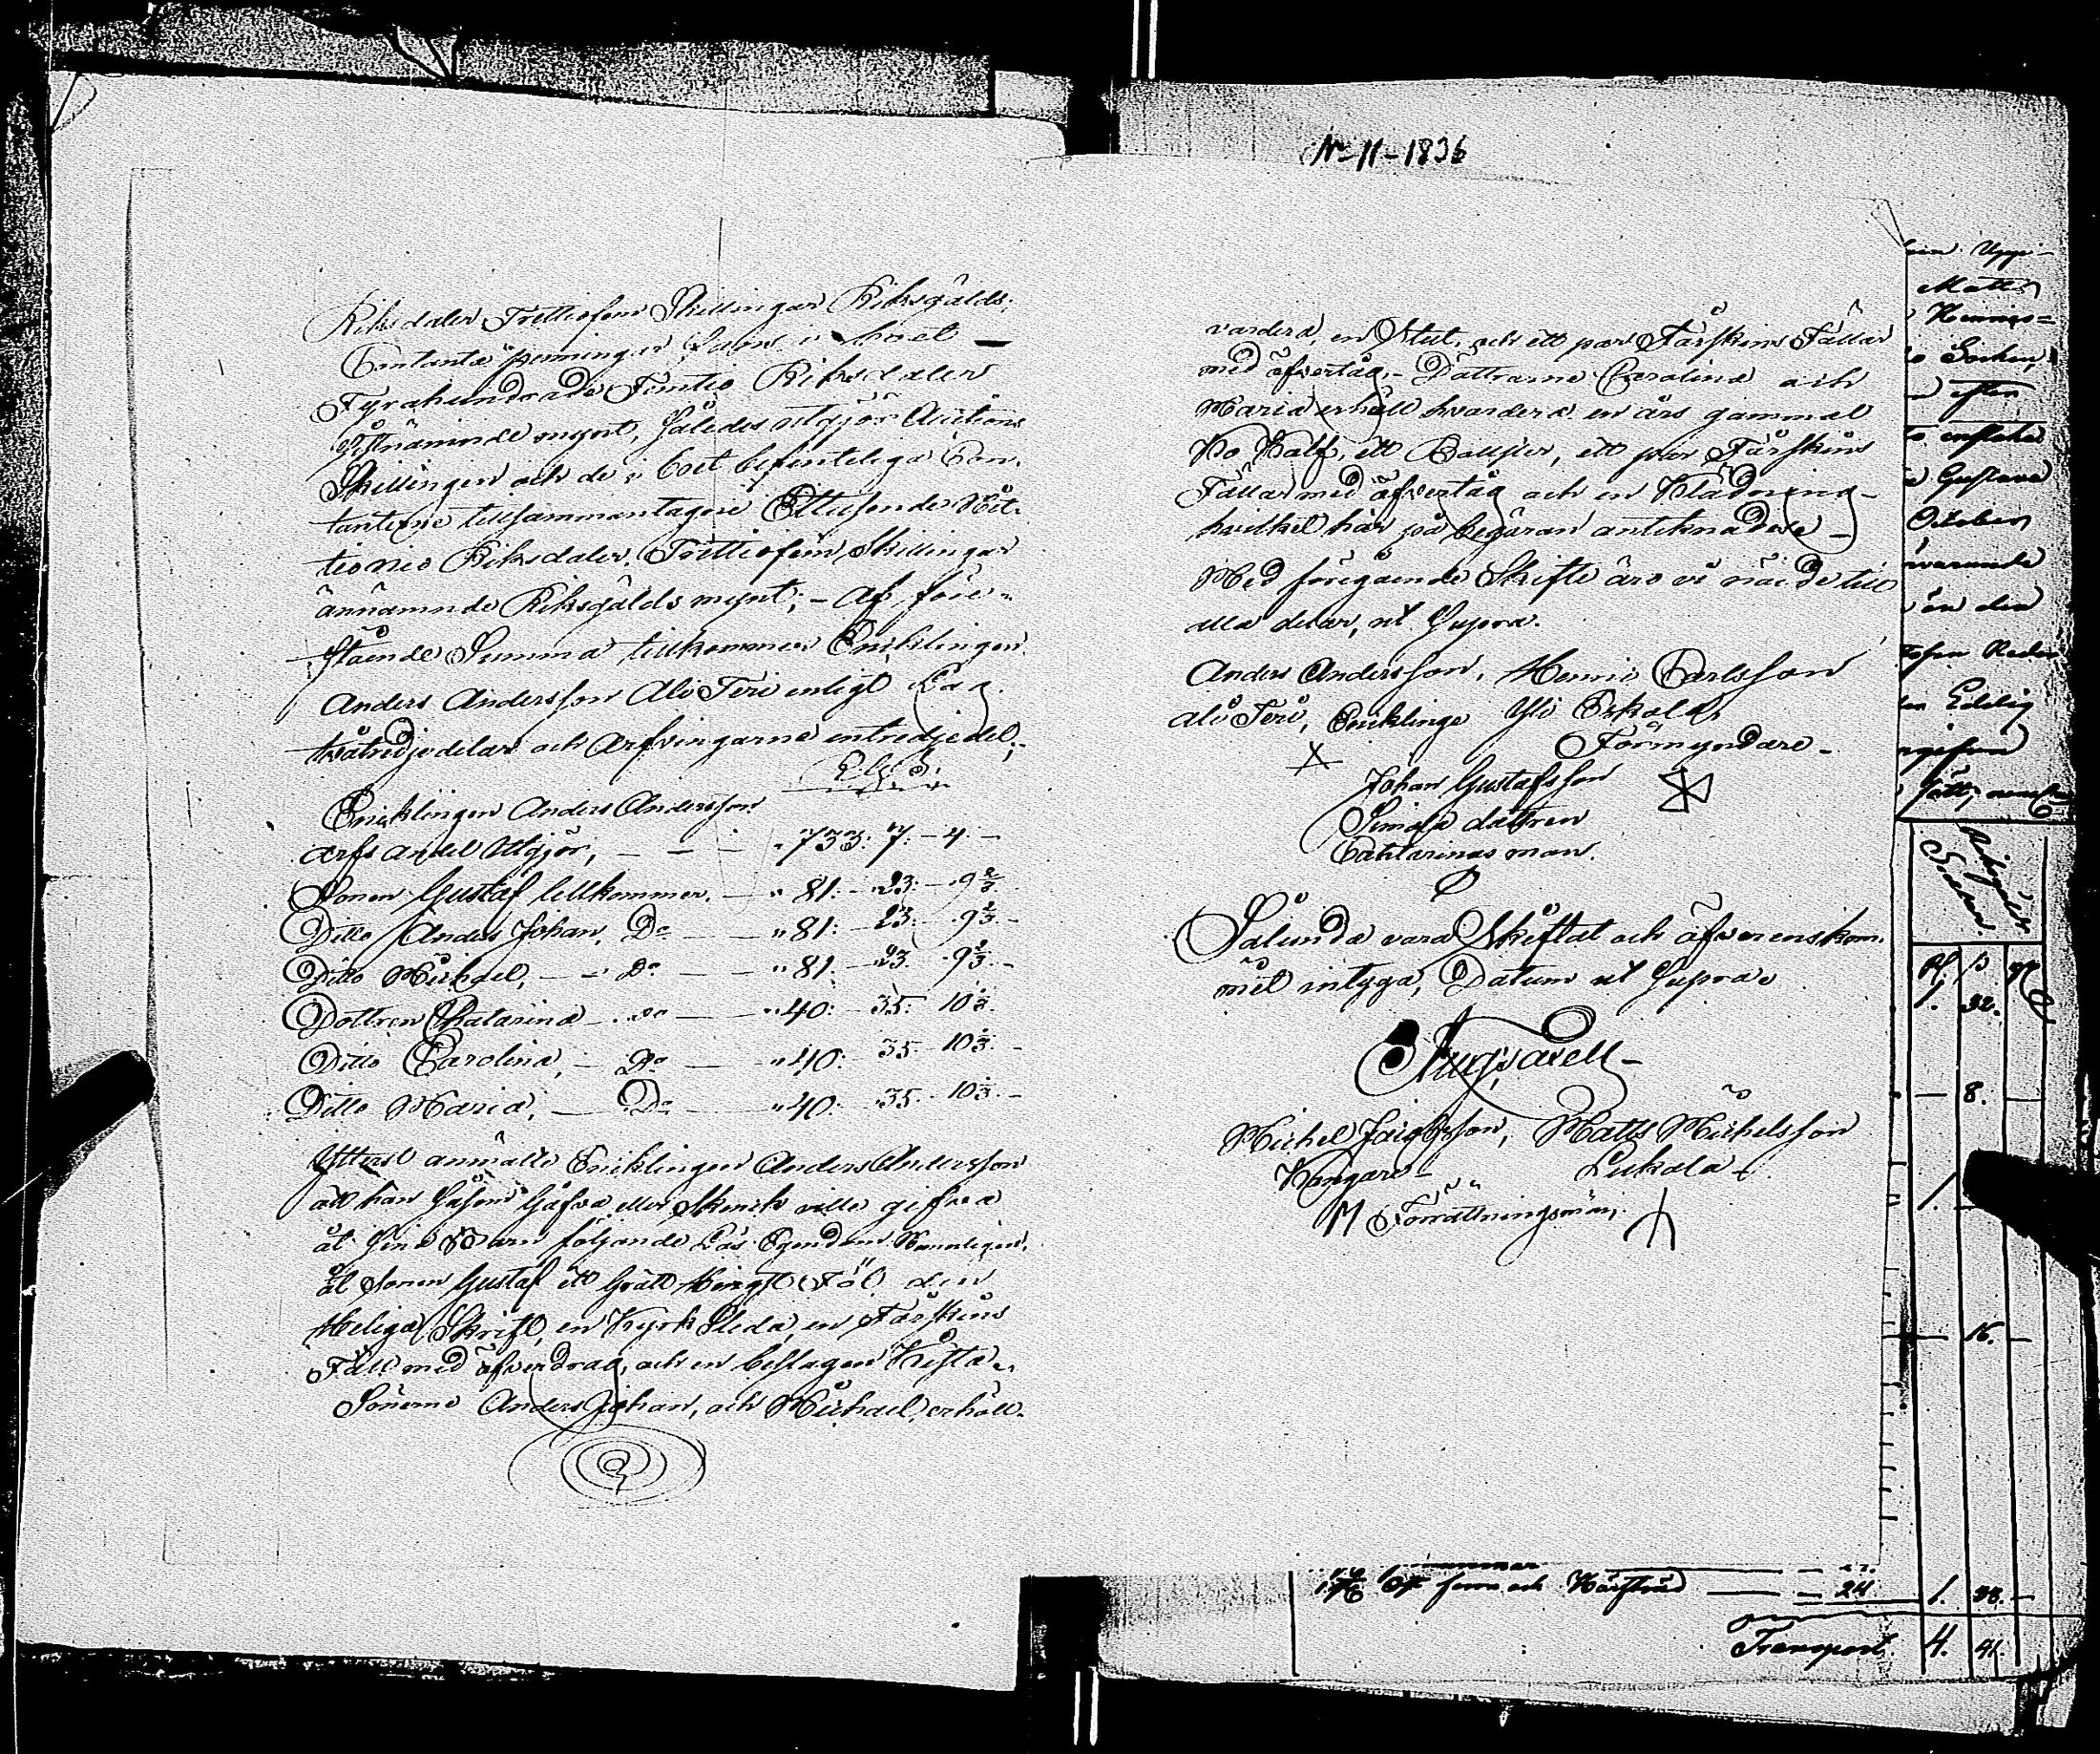 Riksdaler Trettiofem Skillingar Riksgälds.
Contanta penningar funns i boet —
Fyrahundrade Femtio Riksdaler
sistnämnde mynt, således utgjör Auctions
Skillingen och de i boet befinteliga Con-
tanterne tillsammantagne Ettusende Nit-
tionio Riksdaler, Trettiofem Skillingar
annämnde Riksgälds mynt; - Af före-
stående Summa tillkommer Encklingen
Anders Andersson Ali Teri enligt Lag
tvåtredjedelar och Arfvingarne entredjedel;
Encklingen Anders Andersson
arfs andel Utgjör, — — — " 733: 7: - 4: -
Sonen Gustaf tillkommer. — " 81: - 23: - 9 2/3.
Ditto Anders Johan, Do — " 81: - 23: - 9 2/3. -
Ditto Michael, — Do — " 81: - 23. - 9 2/3. -
Dottren Chatarina — Do — " 40: - 35. 10 1/3.
Ditto Carolina, — Do — " 40: 35. - 10 1/3. -
Ditto Maria, — Do — " 40: - 35. - 10 1/3. -
Ytterst anmälte Encklingen Anders Andersson
att han såsom Gåfva eller Skenck ville gifva
åt sina Barn följande Lös Egendom Nemligen,
åt Sonen Gustaf ett Grått hingst Föl den
Heliga Skrift, en Kyrk Släda, en Fårskins
Fäll med öfverdrag, och en beslagen Kista.
Sönerne Anders Johan, och Michael, erhåll-
No 11 - 1836
vardera, en Stut, och ett par Fårskins Fällar
med öfvertåg - Döttrarne Carolina och
Maria erhöll hvardera en års gammal
Ko Kalf, ett ett par Fårskins
Fällar med öfvertåg och en Klädning -
hvilket här på begäran antecknades -
Med föregående Skifte äro vi nöide till
alla delar, ut Supra.
Anders Andersson, Henric Carlsson
Ali Teri, Enckling Yli Eskola
Förmyndare -
Johan Gustafsson
dottren
Cathtarinas man.
Sålunda vara Skiftat och öfverenskom-
mit intyga, Datum ut Supra
Michel Jacobsson, Matts Michelsson
Kangare - Lukala -
M Förrättningsmän,
Upp-
Matts
Socken,
efter
enskilda
Gustava
October
närvarande
än den
Edelig
Rf. ß rs
1. 32.
— 8. —
1. —
— 16. —
Transport. 4. 41.